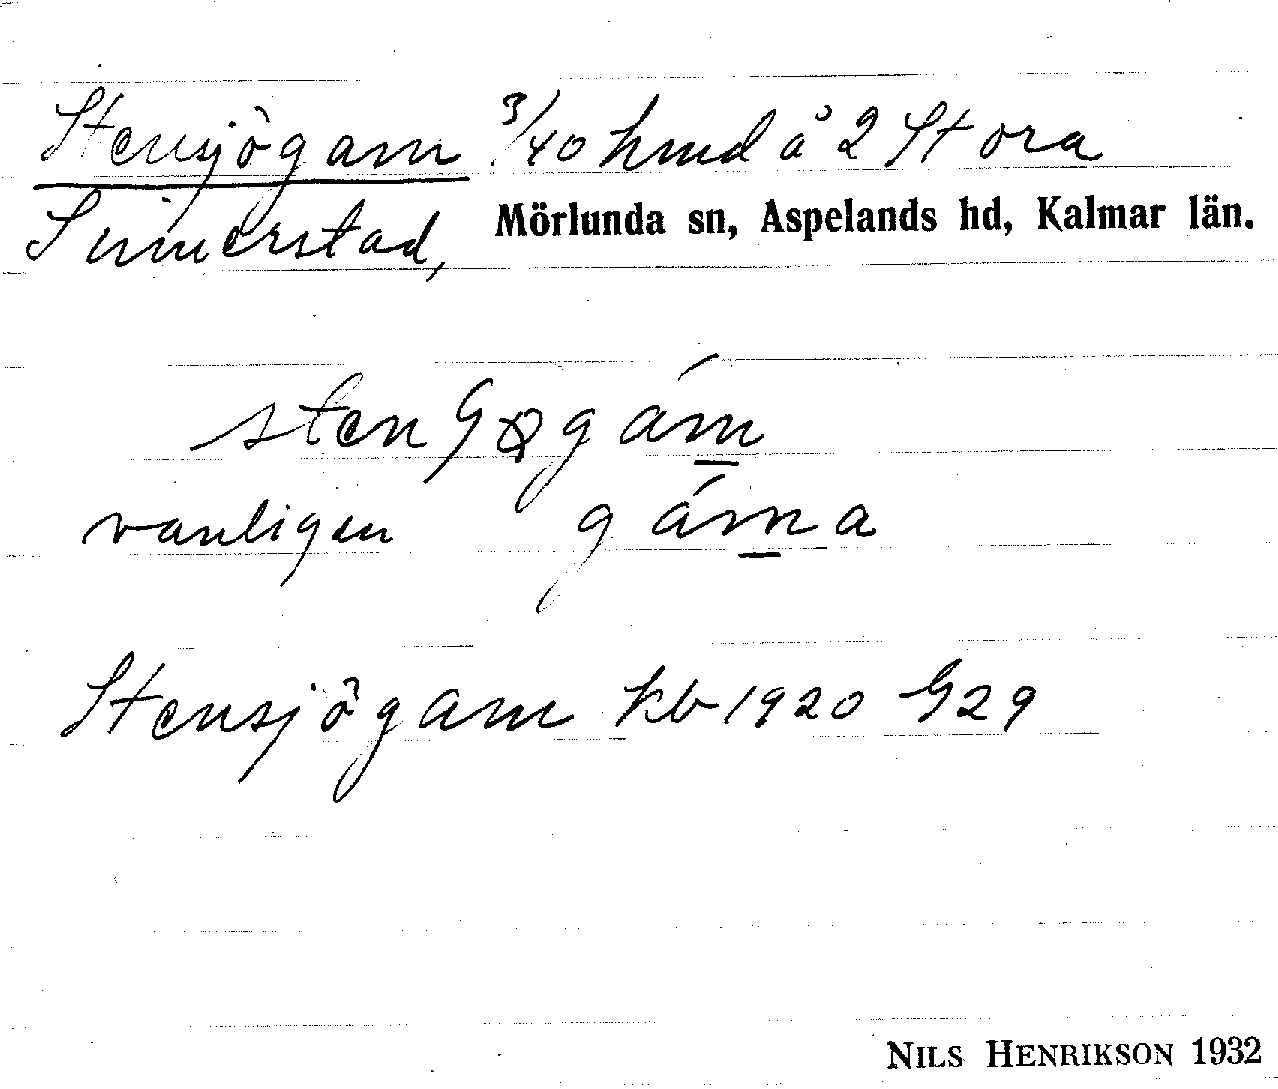 Stensjögam 3/40 hmd å 2 Stora
Simerstad, Mörlunda sn, Aspelands hd, Kalmar län.
vanligen gáma
Stensjögam kb 1920 G29
NILS HENRIKSON 1932